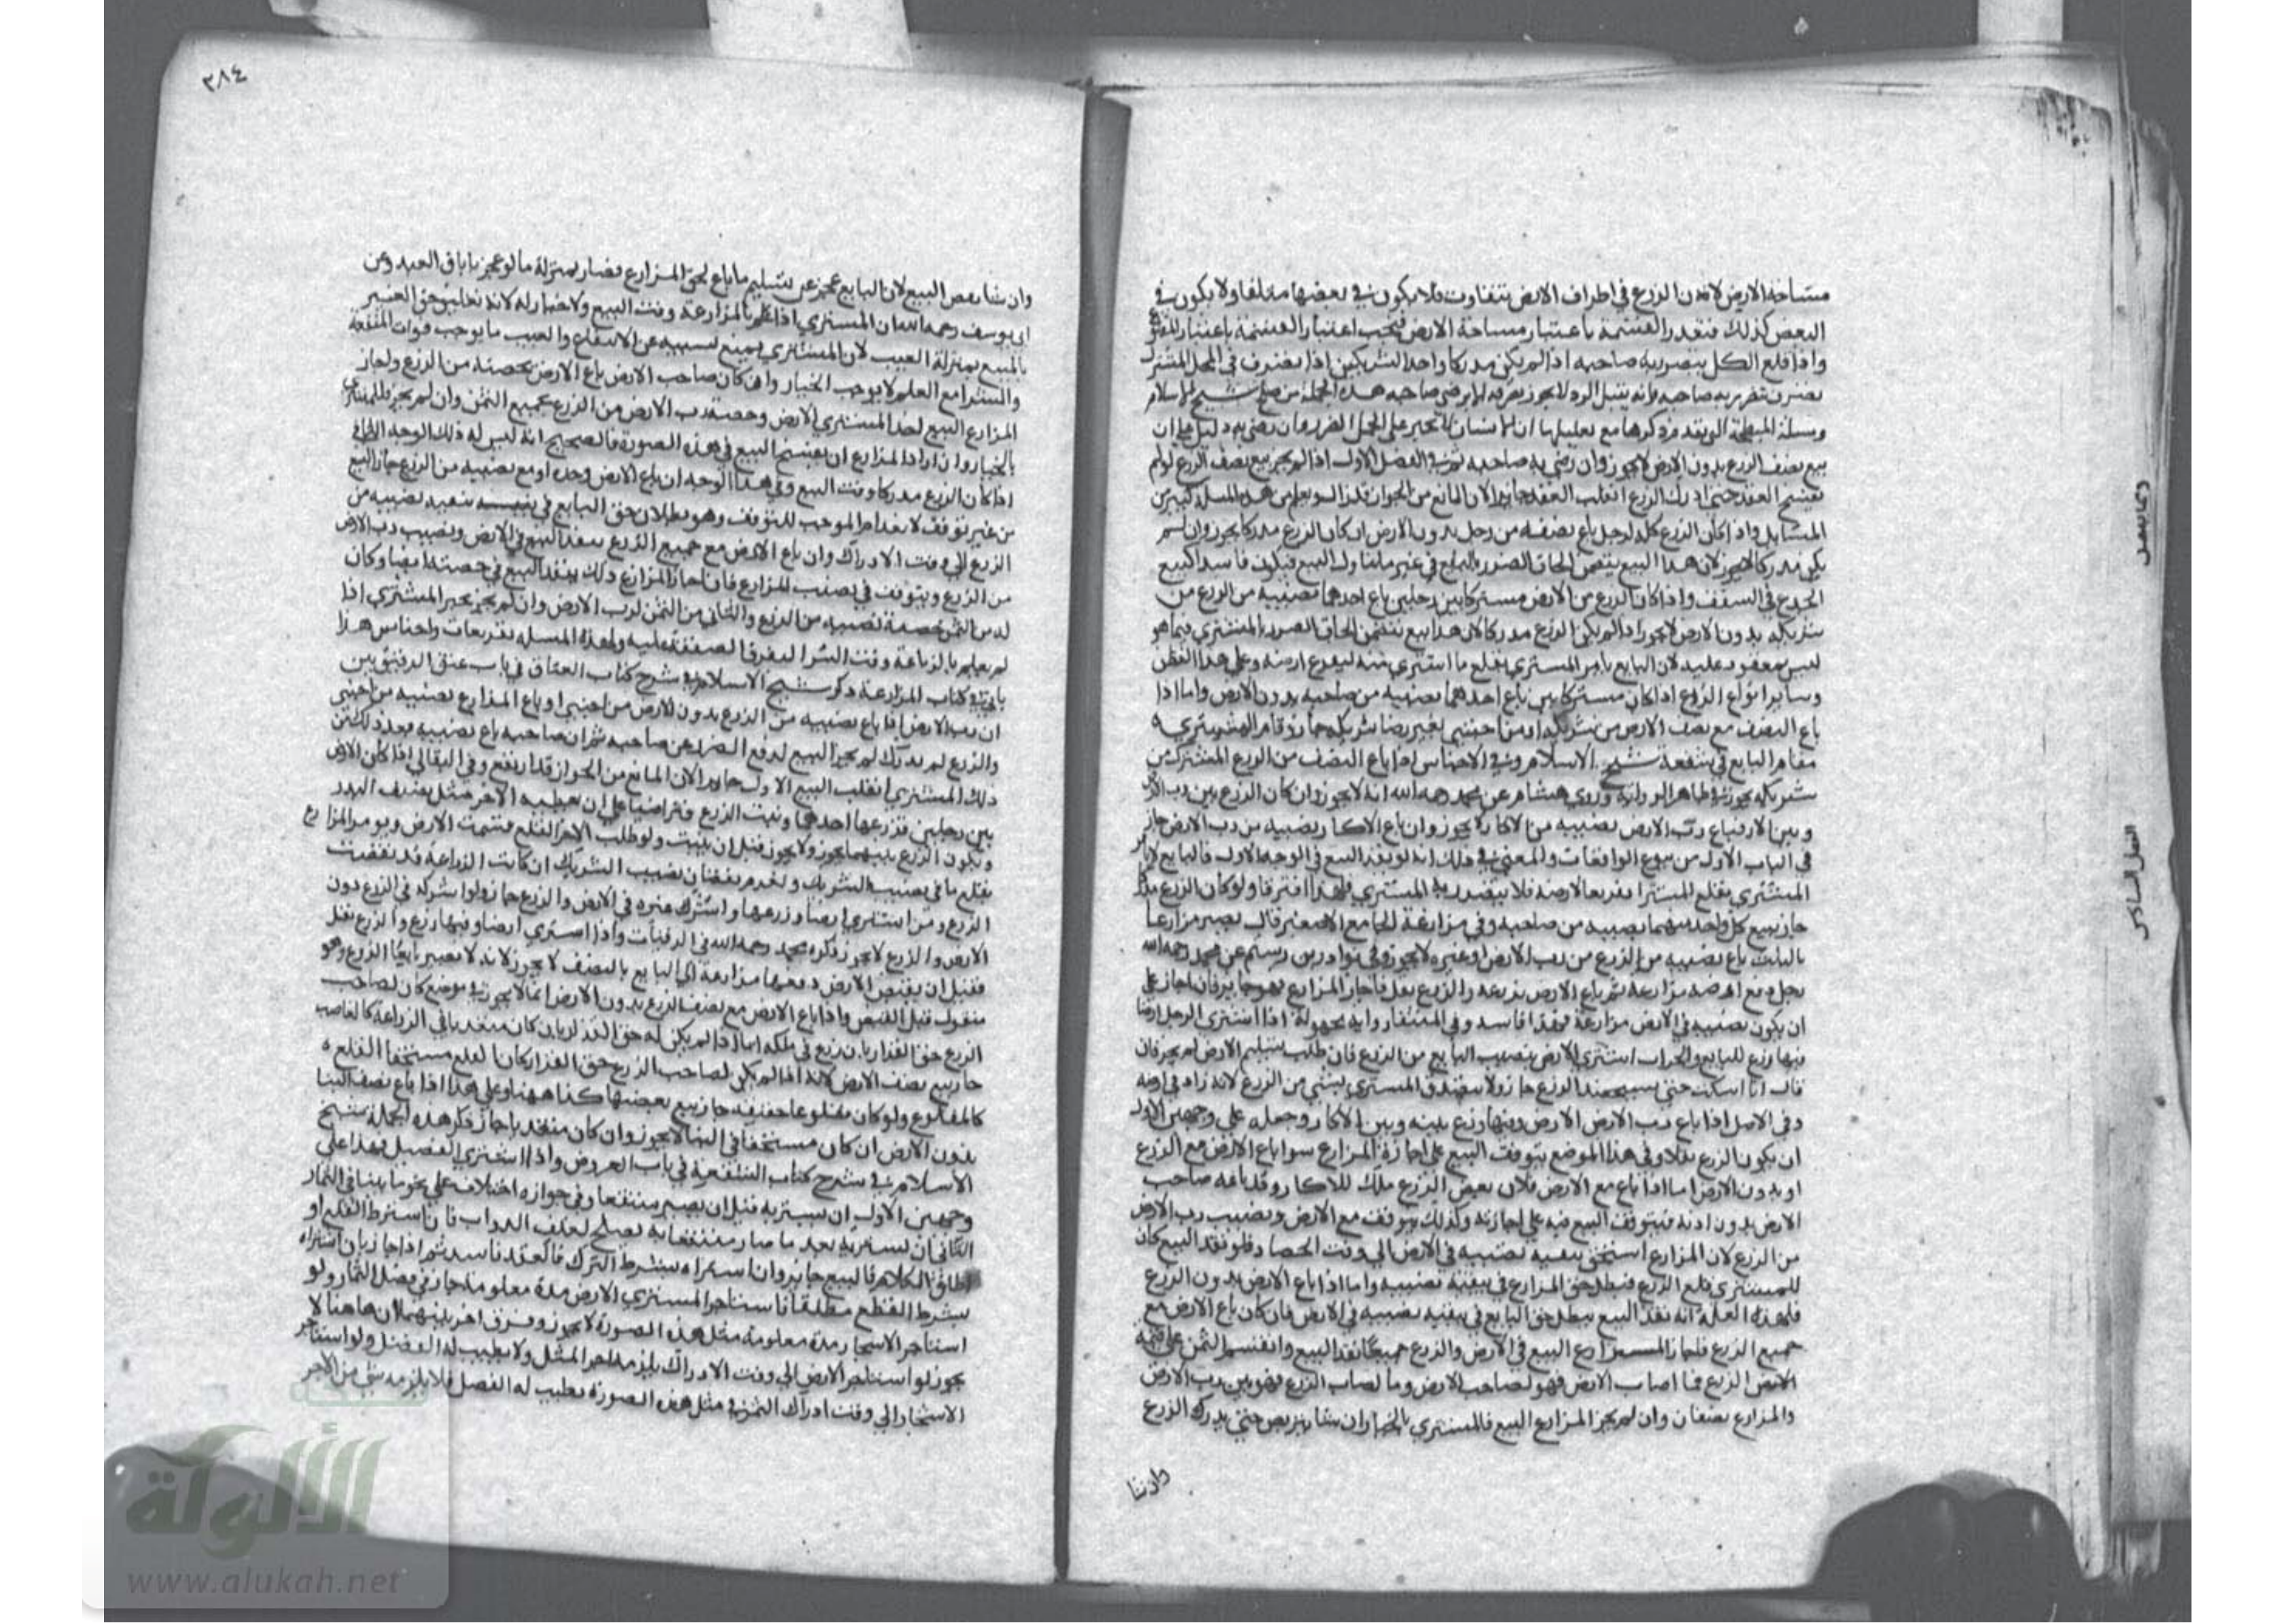 مساحة الارض لان الزرع في اطراف الارض يتفاوت فلا يكون في بعضها ملتفا ولا يكون في
البعض كذلك فتعذر القسمة باعتبار مساحة الارض فيجب اعتبار القسمة باعتبار المقلوع
واذا قلع الكل يتضرر به صاحبه اذا لم يكن مدركا واحد الشريكين اذا تصرف في المحل المشترك
تصرف يتضرر به صاحبه وانه يقبل الرد لا يجوز تصرفه الا برضى صاحبه هذه الجملة من صلح شيخ الاسلام
ومسئلة المبطخة التي تقدم ذكرها مع تعليلها ان الانسان لا يجبر على تحمل الضرر وان رضي به دليل على ان
بيع نصف الزرع بدون الارض لا يجوز وان رضي به صاحبه ثم في الفصل الاول اذا لم يجز بيع نصف الزرع لو لم
يفسخ العقد حتى ادرك الزرع انقلب العقد جائزا لان المانع من الجواز قد زال ويعلم من هذه المسئلة كثير من
المسائل واذا كان الزرع كله لرجل باع نصفه من رجل بدون الارض ان كان الزرع مدركا يجوز وان لم
يكن مدركا لا يجوز لان هذا البيع يتضمن الحاق الضرر بالبايع في غير ما تناوله البيع فيكون فاسدا كبيع
الجذع في السقف واذا كان الزرع من الارض مشتركا بين رجلين باع احدهما نصيبه من الزرع من
شريكه بدون الارض لا يجوز اذا لم يكن الزرع مدركا لان هذا بيع يتضمن الحاق الضرر بالمشتري فيما هو
ليس بمعقود عليه لان البايع يامر المشتري بقلع ما اشترى منه ليفرغ ارضه وعلى هذا القطن
وسائر انواع الزرع اذا كان مشتركا بين باع احدهما نصيبه من صاحبه بدون الارض واما اذا
باع النصف مع نصف الارض من شريكه او من اجنبي بغير رضا شريكه جاز وقام المشتري
مقام البايع في شفعة شيخ الاسلام وفي الاجناس اذا باع النصف من الزرع المشترك من
شريكه يجوز في ظاهر الرواية وروى هشام عن محمد رحمه الله انه لا يجوز وان كان الزرع بين رب الارض
وبين الاكار فباع رب الارض نصيبه من الاكار لا يجوز وان باع الاكار نصيبه من رب الارض جاز
في الباب الاول من بيوع الواقعات والمعنى في ذلك انه لو نفذ البيع في الوجه الاول فالبايع يامر
المشتري بقلع المشترا تفريعا لارضه فلا يتضرر به المشتري فلهذا افترقا ولو كان الزرع مدركا
جاز بيع كل واحد منهما نصيبه من صاحبه وفي مزارعة الجامع الاصغر قال نصير مزارعا
بالثلث باع نصيبه من الزرع من رب الارض او غيره لا يجوز وفي نوادر بن رستم عن محمد رحمه الله
رجل دفع ارضه مزارعة ثم باع الارض بزرعه والزرع بقل فاجاز المزارع فهو جايز فان اجاز على
ان يكون نصيبه في الارض مزارعة فهذا فاسد وفي المنتقى رواية مجهولة اذا اشترى الرجل ارضا
فيها زرع للبايع والحراث اشترى الارض بنصيب البايع من الزرع فان طلب تسليم الارض لم يجز فان
قال انا اسكت حتى يستحصد الزرع جاز ولا يتصدق المشتري بشي من الزرع لانه زاد في ارضه
وفي الاصل اذا باع رب الارض الارض وفيها زرع بينه وبين الاكار وجعله على وجهين الاول
ان يكون الزرع بقلا وفي هذا الموضع يتوقف البيع على اجازة المزارع سوا باع الارض مع الزرع
او بدون الارض اما اذا باع مع الارض فلان بعض الزرع ملك للاكار وقد باعه صاحب
الارض بدون اذنه فيتوقف البيع فيه على اجازته وكذلك يتوقف مع الارض ونصيب رب الارض
من الزرع لان المزارع استحق تبقية نصيبه في الارض الى وقت الحصاد فلو نفذ البيع كان
للمشتري قلع الزرع فيبطل حق المزارع في تبقية نصيبه واما اذا باع الارض بدون الزرع
فلهذه العلة انه نفذ البيع يبطل حق البايع في تبقية نصيبه في الارض فان كان باع الارض مع
جميع الزرع فاجاز المزارع البيع في الارض والزرع جميعا نفذ البيع وانقسم الثمن على قيمة
الارض الزرع فما اصاب الارض فهو لصاحب الارض وما اصاب الزرع فهو بين رب الارض
والمزارع نصفان وان لم يجز المزارع البيع فالمشتري بالخيار ان شا يتربص حتى يدرك الزرع
وان شا
٣٨٤
وان شا نقض البيع لان البايع عجز عن تسليم ما باع لحق المزارع فصار بمنزلة ما لو عجز باباق العبد وعن
ابي يوسف رحمه الله ان المشتري اذا علم بالمزارعة وقت البيع ولا خيار له لانه تعليق حق الغير
بالمبيع بمنزلة العيب لان المشتري يمنع بسببه عن الانتفاع والعيب ما يوجب فوات المنفعة
والشرا مع العلم لا يوجب الخيار وان كان صاحب الارض باع الارض بحصته من الزرع ولجاز
المزارع البيع اخذ المشتري الارض وحصة رب الارض من الزرع بجميع الثمن وان لم يجز فللمشتري
الخيار وان اراد المزارع ان يفسخ البيع في هذه الصورة فالصحيح انه ليس له ذلك الوجه الثاني
اذا كان الزرع مدركا وقت البيع وفي هذا الوجه ان باع الارض وحده او مع نصيبه من الزرع جاز البيع
من غير توقف لانعدام الموجب للتوقف وهو بطلان حق البايع في تبقية نصيبه من
الزرع الى وقت الادراك وان باع الارض مع جميع الزرع ينفذ البيع في الارض ونصيب رب الارض
من الزرع ويتوقف في نصيب المزارع فان اجاز المزارع ذلك ينفذ البيع في حصته ايضا وكان
له من الثمن حصة نصيبه من الزرع والثاني من الثمن لرب الارض وان لم يجز يخير المشتري اذا
لم يعلم بالزراعة وقت الشرا لتفرق الصفقة عليه ولهذه المسئلة تفريعات واجناس هذا
ياتي في كتاب المزارعة ذكر شيخ الاسلام في شرح كتاب العتاق في باب عتق الرقيق بين
ان رب الارض اذا باع نصيبه من الزرع بدون الارض من اجنبي او باع المزارع نصيبه من اجنبي
والزرع لم يدرك لم يجز البيع لدفع الضرر عن صاحبه ثم ان صاحبه باع نصيبه بعد ذلك من
ذلك المشتري انقلب البيع الاول جايزا لان المانع من الجواز قد ارتفع وفي البقالي اذا كان الارض
بين رجلين فزرعها احدهما ونبت الزرع فتراضيا على ان يعطيه الاخر مثل نصف البذر
ويكون الزرع بينهما يجوز ولا يجوز قبل ان ينبت ولو طلب الاخر القلع قسمت الارض ويومر المزارع
بقلع ما في نصيب الشريك ويغرم نقصان نصيب الشريك ان كانت الزراعة قد نقصت
الزرع ومن استرى ارضا وزرعها واشرك غيره في الارض والزرع جاز ولو اشركه في الزرع دون
الارض والزرع لا يجوز ذكره محمد رحمه الله في الرقيات واذا اشترى ارضا وفيها زرع والزرع بقل
فقبل ان يقبض الارض دفعها مزارعة الى البايع بالنصف لا يجوز لانه لا يصير بايعا الزرع وهو
منقول قبل القبض واذا باع الارض مع نصف الزرع بدون الارض انما لا يجوز في موضع كان لصاحب
الزرع حق القرار بان زرع في ملكه اما اذا لم يكن له حق القرار بان كان متعديا في الزراعة كالغاصب
جاز بيع نصف الارض لانه اذا لم يكن لصاحب الزرع حق القرار كان القلع مستحقا القلع
كالمقلوع ولو كان مقلوعا حقيقة جاز بيع بعضها كذا ههنا وعلى هذا اذا باع نصف البنا
بدون الارض ان كان مستحقا في البنا لا يجوز وان كان متعديا جاز ذكر هذه الجملة شيخ
الاسلام في شرح كتاب الشفعة في باب العروض واذا اشترى الفصيل فهذا على
وجهين الاول ان يستريه قبل ان يصير منتفعا وفي جوازه اختلاف على نحو ما بينا في الثمار
الثاني ان يستريه بعد ما صار منتفعا به يصلح لعلف الدواب فان استرط القلع او
اطلق الكلام فالبيع جايز وان استراه بشرط الترك فالعقد فاسد ثم اذا جاز بان استراه
بشرط القطع مطلقا فاستاجر المستري الارض مدة معلومة جاز في فصل الثمار ولو
استاجر الاسجار مدة معلومة مثل هذه الصورة لا يجوز وفرق اخر بينهما ان هاهنا لا
يجوز لو استاجر الارض الى وقت الادراك يلزمه اجر المثل ولا يطيب له الفضل ولو استاجر
الاشجار الى وقت ادراك الثمر في مثل هذه الصورة يطيب له الفضل فلا يلزمه شي من الاجر
الألوكة
www.alukah.net